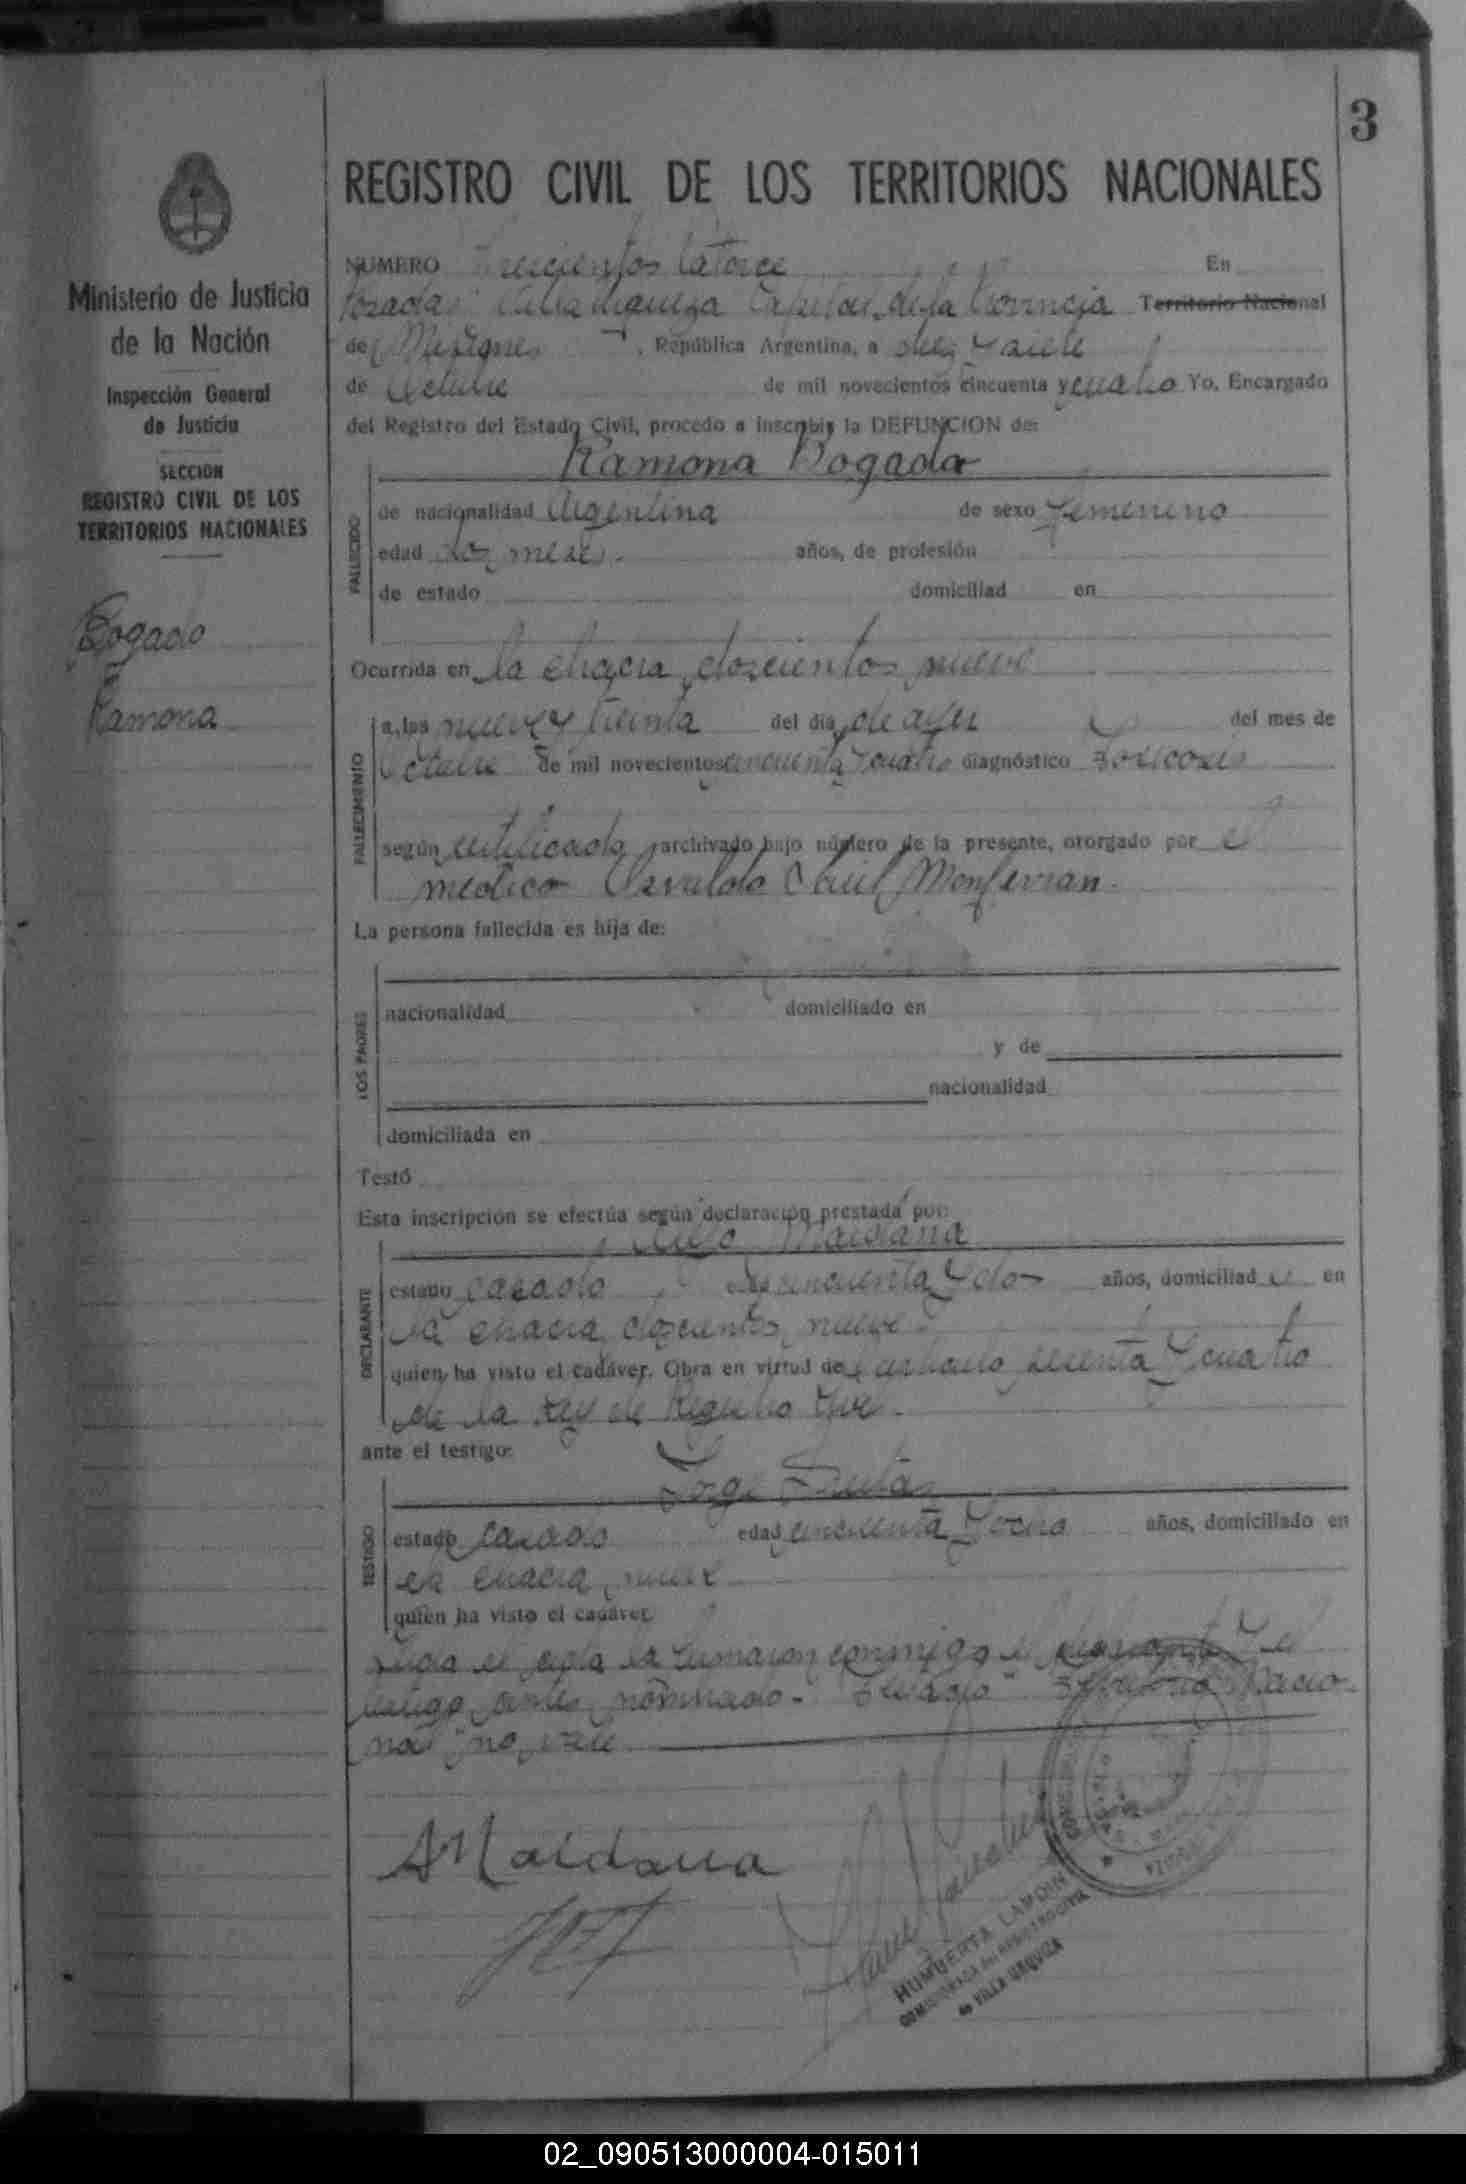 3
REGISTRO CIVIL DE LOS TERRITORIOS NACIONALES
Ministerio de Justicia
de la Nación
Inspección General
de Justicia
SECCION
REGISTRO CIVIL DE LOS
TERRITORIOS NACIONALES
Bogado
Ramona
NUMERO Trescientos Catorce En
Posadas Villa Urquiza Capital de la Provincia Territorio Nacional
de Misiones, República Argentina, a diez y siete
de Octubre de mil novecientos cincuenta y cuatro Yo, Encargado
del Registro del Estado Civil, procedo a inscribir la DEFUNCION de:
Ramona Bogado
FALLECIDO
de nacionalidad Argentina de sexo femenino
edad dos meses. años, de profesión
de estado domiciliad en
Ocurrida en la chacra doscientos nueve
FALLECIMIENTO
a las nueve y treinta del día de ayer del mes de
Octubre de mil novecientos cincuenta y cuatro diagnóstico Toxicosis
según certificado archivado bajo número de la presente, otorgado por el
médico Osvaldo Monferran.
La persona fallecida es hija de:
LOS PADRES
nacionalidad domiciliado en
y de
nacionalidad
domiciliada en
Testó
Esta inscripción se efectúa según declaración prestada por:
Maidana
DECLARANTE
estado casado cincuenta y dos años, domiciliad o en
la chacra doscientos nueve.
quien ha visto el cadáver. Obra en virtud de artículo sesenta y cuatro
de la Ley de Registro
ante el testigo:
Jorge
TESTIGO
estado casado edad cincuenta y ocho años, domiciliado en
la chacra nueve
quien ha visto el cadáver.
Leída el acta la firmaron conmigo el declarante y el
testigo antes nominado. "Territorio Nacio-
nal" no vale
AMaidana
HUMBERTA LAMDIN
del REGISTRO CIVIL
de VILLA URQUIZA
02_090513000004-015011